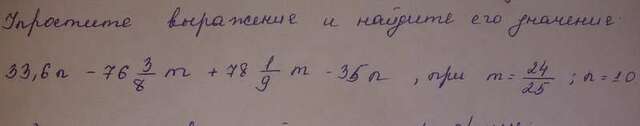 Упростите выражение и найдите его значение.
33,6n - 76 3/8 m + 78 1/9 m - 35n , при m = 24/25 ; n = 10